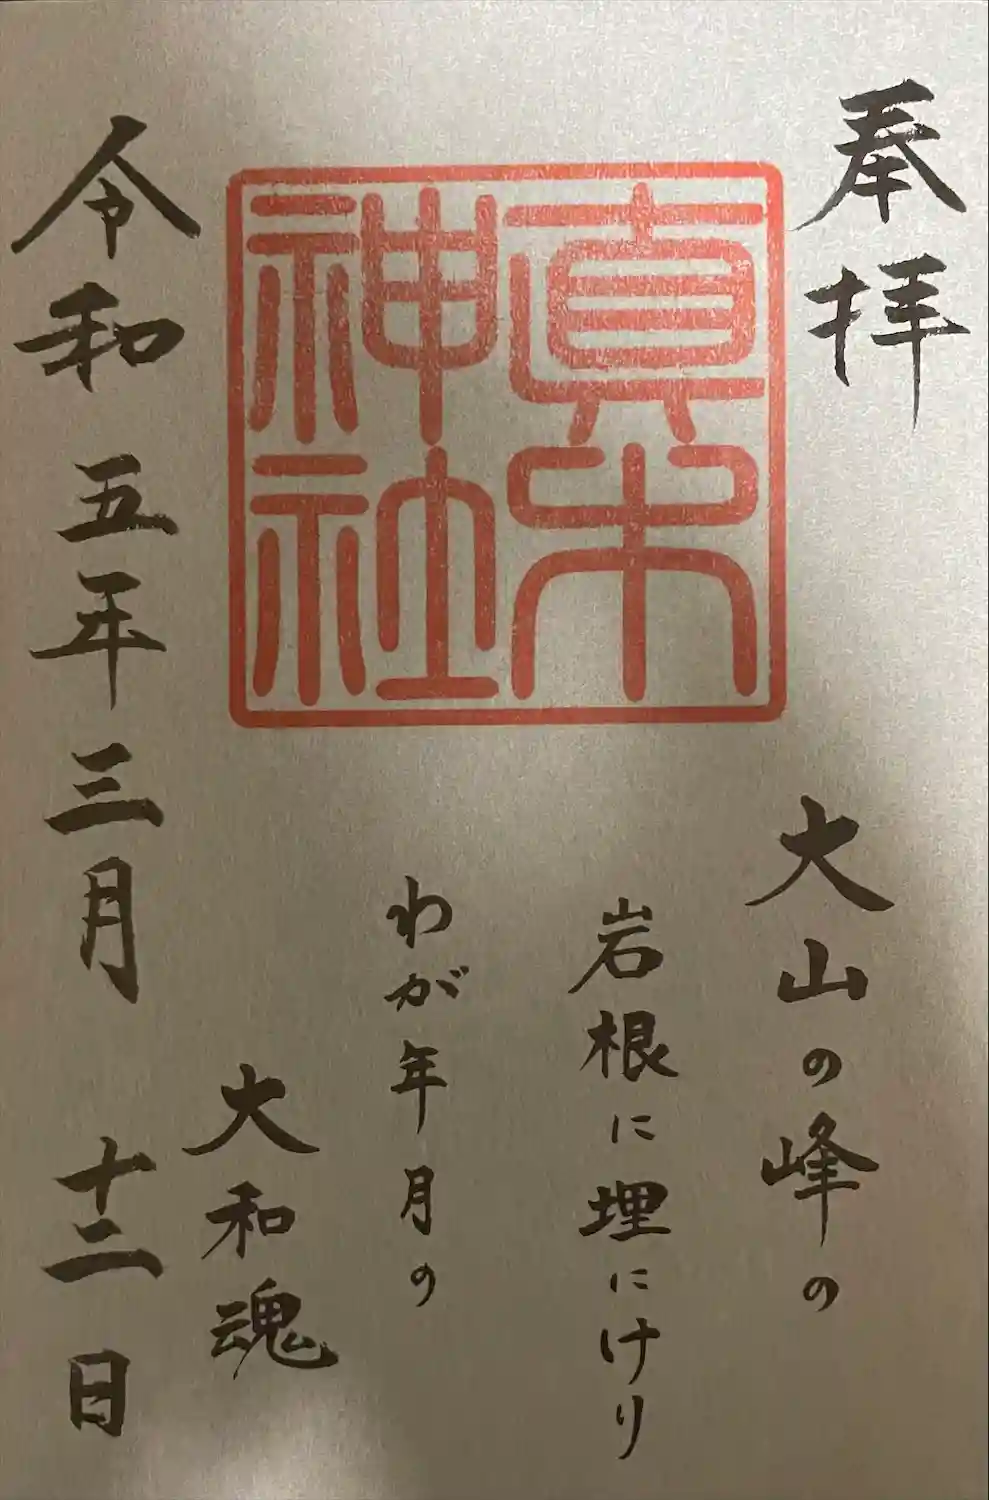 奉拝
大山の峰の
岩根に埋にけり
わが年月の
大和魂
真木神社
令和五年三月十二日